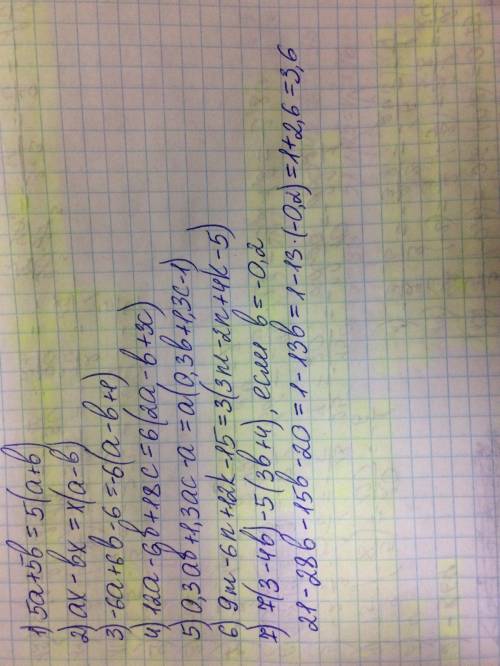 1) 5a+5b=5(a+b)
2) ax-bx=x(a-b)
3) -6a+6b-6=-6(a-b+1)
4) 12a-6b+18c=6(2a-b+3c)
5) 0,3ab+1,3ac-a=a(0,3b+1,3c-1)
6) 9m-6n+12k-15=3(3m-2n+4k-5)
7) 7(3-4b)-5(3b+4), если b=-0,2
21-28b-15b-20=1-13b=1-13·(-0,2)=1+2,6=3,6